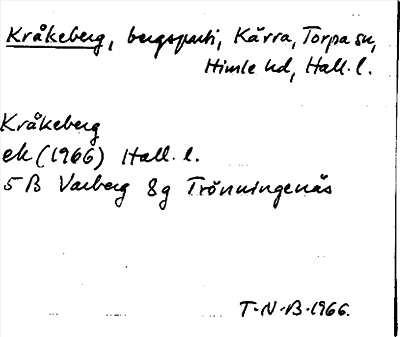 Kråkeberg, bergsparti, Kärra, Torpa sn,
Himle hd, Hall. l.
Kråkeberg
ek (1966) Hall. l.
5B Varberg 8g Trönningenäs
T-N-B-1966.